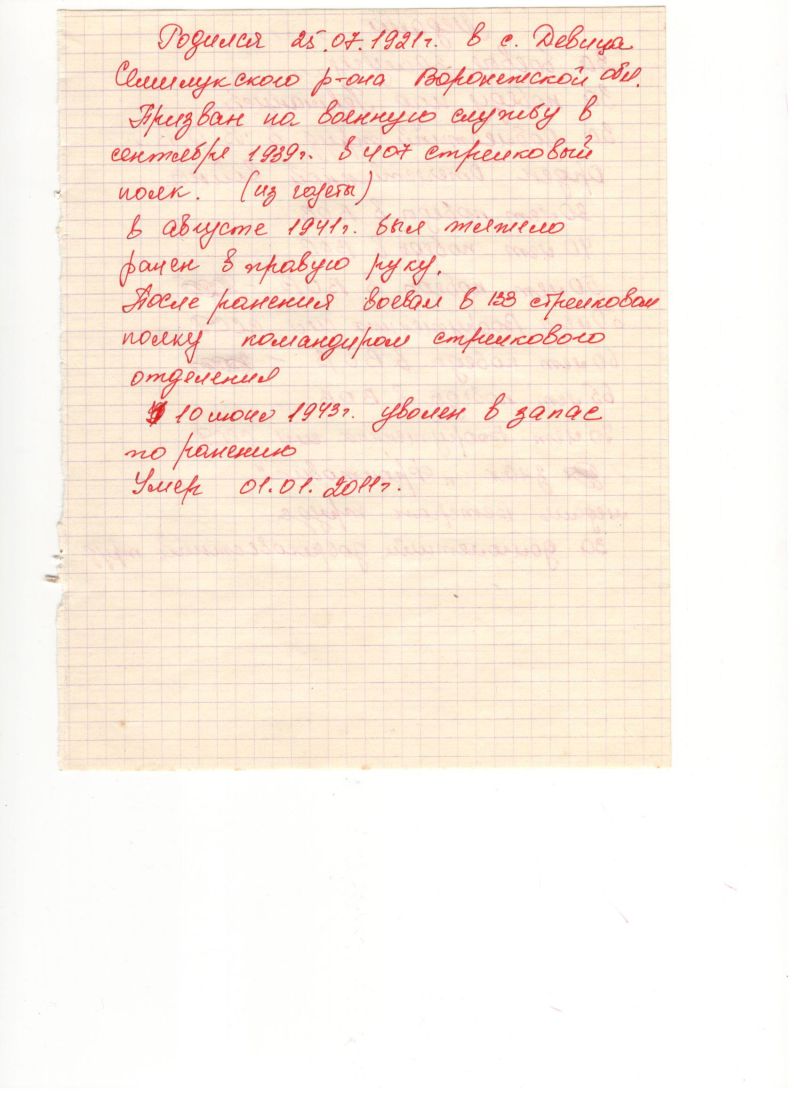 Родился 25.07.1921г. в с. Девица
Семилукского р-она Воронежской обл.
Призван на военную службу в
сентябре 1939г. в 407 стрелковый
полк. (из газеты)
в августе 1941г. был тяжело
ранен в правую руку.
После ранения воевал в 133 стрелковом
полку командиром стрелкового
отделения
10 июня 1943г. уволен в запас
по ранению
Умер 01.01.2011г.